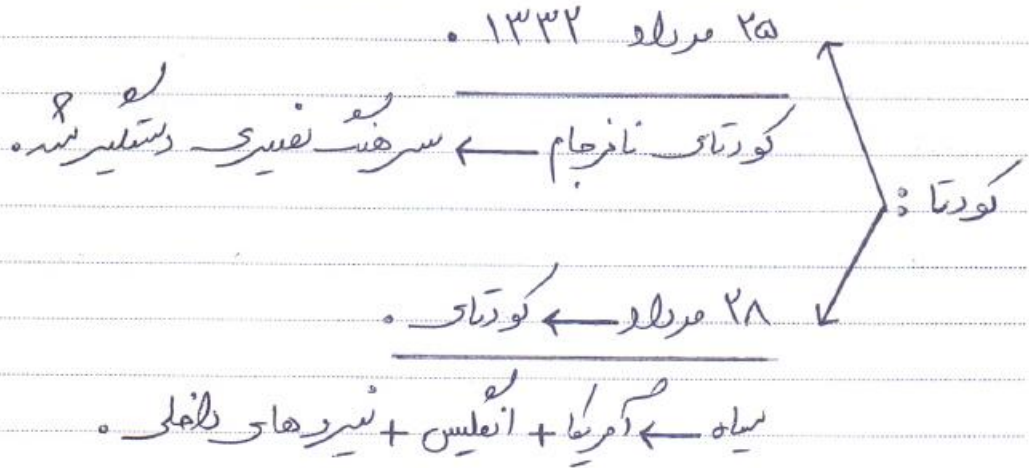 ۲۵ مرداد ۱۳۳۲.
کودتای نافرجام ← سرهنگ نصیری دستگیر شد.
کودتا:
۲۸ مرداد ← کودتای.
سیاه ← آمریکا + انگلیس + نیروهای داخلی.